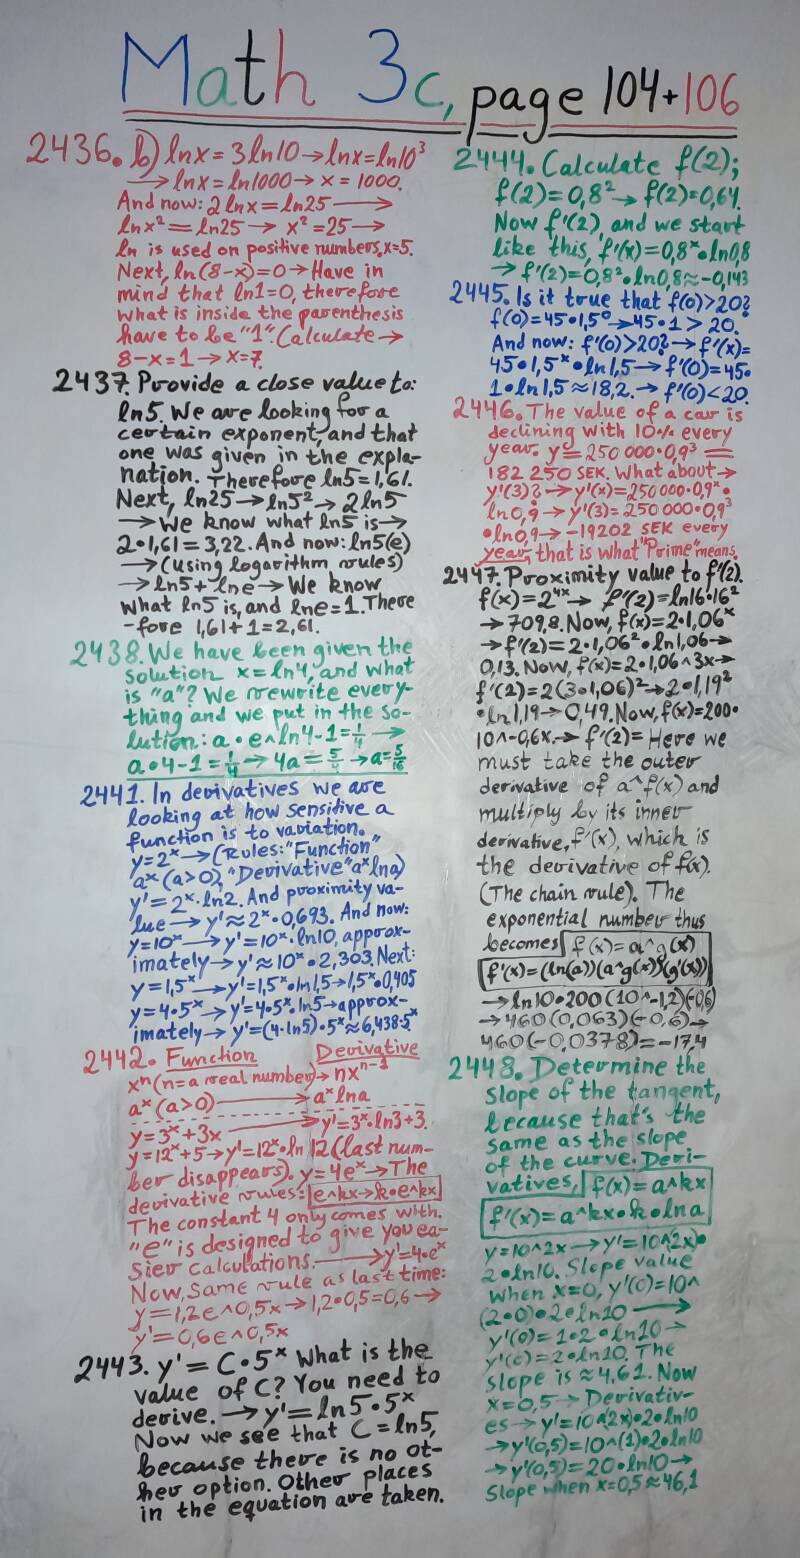 Math 3c, page 104+106
2436. b) lnx = 3ln10 → lnx = ln10³
→ lnx = ln1000 → x = 1000.
And now: 2lnx = ln25 →
lnx² = ln25 → x² = 25 →
ln is used on positive numbers, x=5.
Next, ln(8-x)=0 → Have in
mind that ln1=0, therefore
what is inside the parenthesis
have to be "1". Calculate →
8-x=1 → x=7.
2437. Provide a close value to:
ln5. We are looking for a
certain exponent, and that
one was given in the expla-
nation. Therefore ln5=1,61.
Next, ln25 → ln5² → 2ln5
→ We know what ln5 is →
2•1,61=3,22. And now: ln5(e)
→ (using logarithm rules)
→ ln5+lne → We know
what ln5 is, and lne=1. There
-fore 1,61+1=2,61.
2438. We have been given the
solution x=ln4, and what
is "a"? We rewrite every-
thing and we put in the so-
lution: a•e^ln4-1=¼ →
a•4-1=¼ → 4a=5/4 → a=5/16
2441. In derivatives we are
looking at how sensitive a
function is to variation.
y=2ˣ → (Rules: "Function"
aˣ (a>0), "Derivative" aˣlna)
y'=2ˣ•ln2. And proximity va-
lue → y'≈2ˣ•0,693. And now:
y=10ˣ → y'=10ˣ•ln10, approx-
imately → y'≈10ˣ•2,303. Next:
y=1,5ˣ → y'=1,5ˣ•ln1,5 → 1,5ˣ•0,405
y=4•5ˣ → y'=4•5ˣ•ln5 → approx-
imately → y'=(4•ln5)•5ˣ≈6,438•5ˣ
2442. Function Derivative
xⁿ (n=a real number) → nxⁿ⁻¹
aˣ (a>0) → aˣ lna
y=3ˣ+3x → y'=3ˣ•ln3+3.
y=12ˣ+5 → y'=12ˣ•ln12 (last num-
ber disappears). y=4eˣ → The
derivative rules: e^kx → k•e^kx
The constant 4 only comes with.
"e" is designed to give you ea-
sier calculations. → y'=4•eˣ
Now, same rule as last time:
y=1,2e^0,5x → 1,2•0,5=0,6 →
y'=0,6e^0,5x
2443. y'=C•5ˣ What is the
value of C? You need to
derive. → y'=ln5•5ˣ
Now we see that C=ln5,
because there is no ot-
her option. Other places
in the equation are taken.
2444. Calculate f(2);
f(2)=0,8² → f(2)=0,64.
Now f'(2), and we start
like this, f'(x)=0,8ˣ•ln0,8
→ f'(2)=0,8²•ln0,8≈-0,143
2445. Is it true that f(0)>20?
f(0)=45•1,5⁰ → 45•1>20.
And now: f'(0)>20? → f'(x)=
45•1,5ˣ•ln1,5 → f'(0)=45•
1•ln1,5≈18,2. → f'(0)<20.
2446. The value of a car is
declining with 10% every
year. y=250 000•0,9³=
182 250 SEK. What about →
y'(3)? → y'(x)=250 000•0,9ˣ•
ln0,9 → y'(3)=250 000•0,9³
•ln0,9 → -19202 SEK every
year, that is what "Prime" means.
2447. Proximity value to f'(2).
f(x)=2⁴ˣ → f'(2)=ln16•16²
→ 709,8. Now, f(x)=2•1,06ˣ
→ f'(2)=2•1,06²•ln1,06 →
0,13. Now, f(x)=2•1,06^3x →
f'(2)=2(3•1,06)² → 2•1,19²
•ln1,19 → 0,49. Now, f(x)=200•
10^-0,6x. → f'(2)= Here we
must take the outer
derivative of a^f(x) and
multiply by its inner
derivative, f'(x), which is
the derivative of f(x).
(The chain rule). The
exponential number thus
becomes f(x)=a^g(x)
f'(x)=(ln(a))(a^g(x))(g'(x))
→ ln10•200(10^-1,2)(-0,6)
→ 460(0,063)(-0,6) →
460(-0,0378)=-17,4
2448. Determine the
slope of the tangent,
because that's the
same as the slope
of the curve. Deri-
vatives, f(x)=a^kx
f'(x)=a^kx•k•lna
y=10^2x → y'=10^(2x)•
2•ln10. Slope value
when x=0, y'(0)=10^
(2•0)•2•ln10 →
y'(0)=1•2•ln10 →
y'(0)=2•ln10. The
slope is ≈4,61. Now
x=0,5 → Derivativ-
es → y'=10^(2x)•2•ln10
→ y'(0,5)=10^(1)•2•ln10
→ y'(0,5)=20•ln10 →
Slope when x=0,5≈46,1